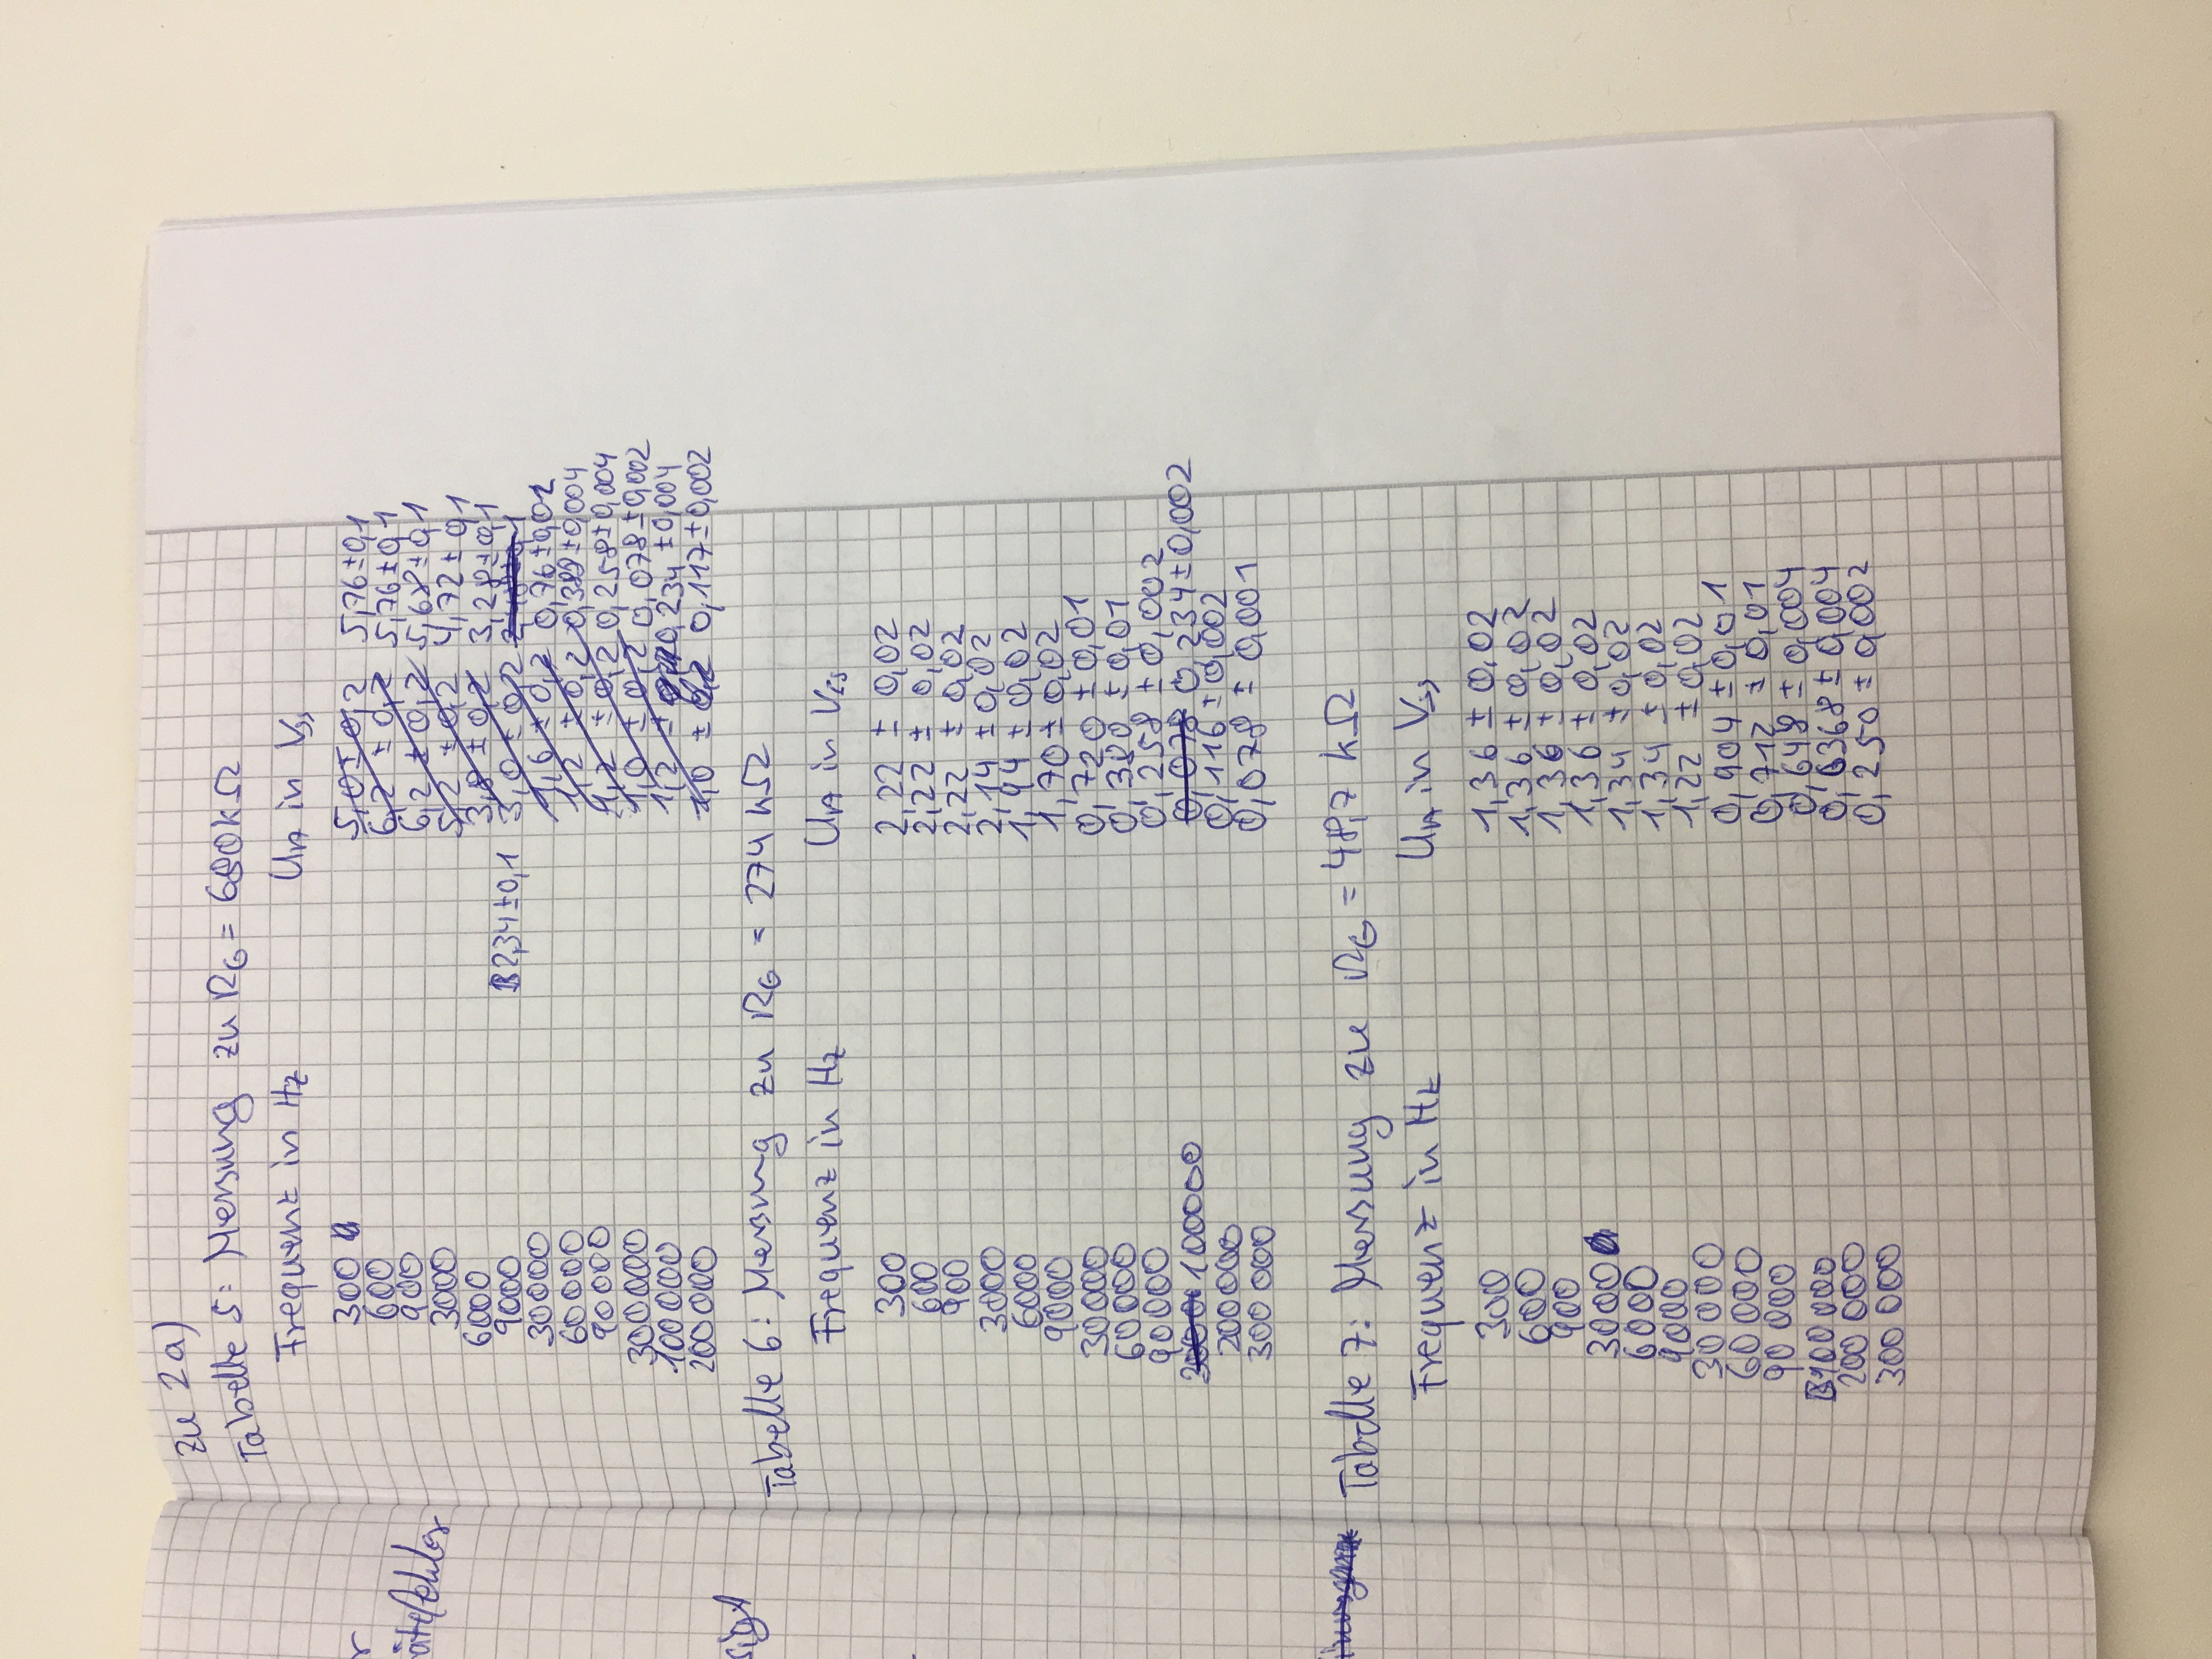 r
ätefehler
sigt
zu 2a)
Tabelle 5: Messung zu RG = 680kΩ
Frequenz in Hz UA in Vss
300 5,0 ± 0,2 5,76 ± 0,1
600 6,2 ± 0,2 5,76 ± 0,1
900 6,2 ± 0,2 5,68 ± 0,1
3000 5,2 ± 0,2 4,72 ± 0,1
6000 3,8 ± 0,2 3,28 ± 0,1
9000 2,34 ± 0,1 3,0 ± 0,2
30000 1,6 ± 0,2 0,76 ± 0,02
60000 1,2 ± 0,2 0,388 ± 0,004
90000 1,2 ± 0,2 0,258 ± 0,004
300000 1,0 ± 0,2 0,078 ± 0,002
100000 1,2 ± 0,234 ± 0,004
200000 1,0 ± 0,2 0,117 ± 0,002
Tabelle 6: Messung zu RG = 274 kΩ
Frequenz in Hz UA in Vss
300 2,22 ± 0,02
600 2,22 ± 0,02
900 2,22 ± 0,02
3000 2,14 ± 0,02
6000 1,94 ± 0,02
9000 1,70 ± 0,02
30000 0,720 ± 0,01
60000 0,380 ± 0,01
90000 0,258 ± 0,002
100000 0,078 0,234 ± 0,002
200000 0,116 ± 0,002
300 000 0,078 ± 0,001
Tabelle 7: Messung zu RG = 48,7 kΩ
Frequenz in Hz UA in Vss
300 1,36 ± 0,02
600 1,36 ± 0,02
900 1,36 ± 0,02
3000 1,36 ± 0,02
6000 1,34 ± 0,02
9000 1,34 ± 0,02
30 000 1,22 ± 0,02
60 000 0,904 ± 0,01
90 000 0,712 ± 0,01
100 000 0,648 ± 0,004
200 000 0,6368 ± 0,004
300 000 0,250 ± 0,002